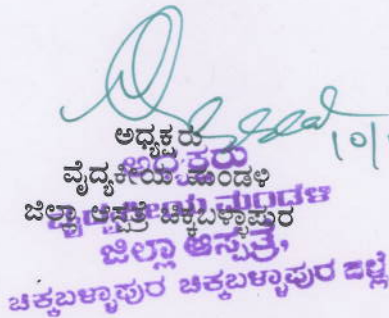 10/
ಅಧ್ಯಕ್ಷರು
ವೈದ್ಯಕೀಯ ಮಂಡಳಿ
ಜಿಲ್ಲಾ ಆಸ್ಪತ್ರೆ ಚಿಕ್ಕಬಳ್ಳಾಪುರ
ಅಧ್ಯಕ್ಷರು
ವೈದ್ಯಕೀಯ ಮಂಡಳಿ
ಜಿಲ್ಲಾ ಆಸ್ಪತ್ರೆ,
ಚಿಕ್ಕಬಳ್ಳಾಪುರ ಚಿಕ್ಕಬಳ್ಳಾಪುರ ಜಿಲ್ಲೆ